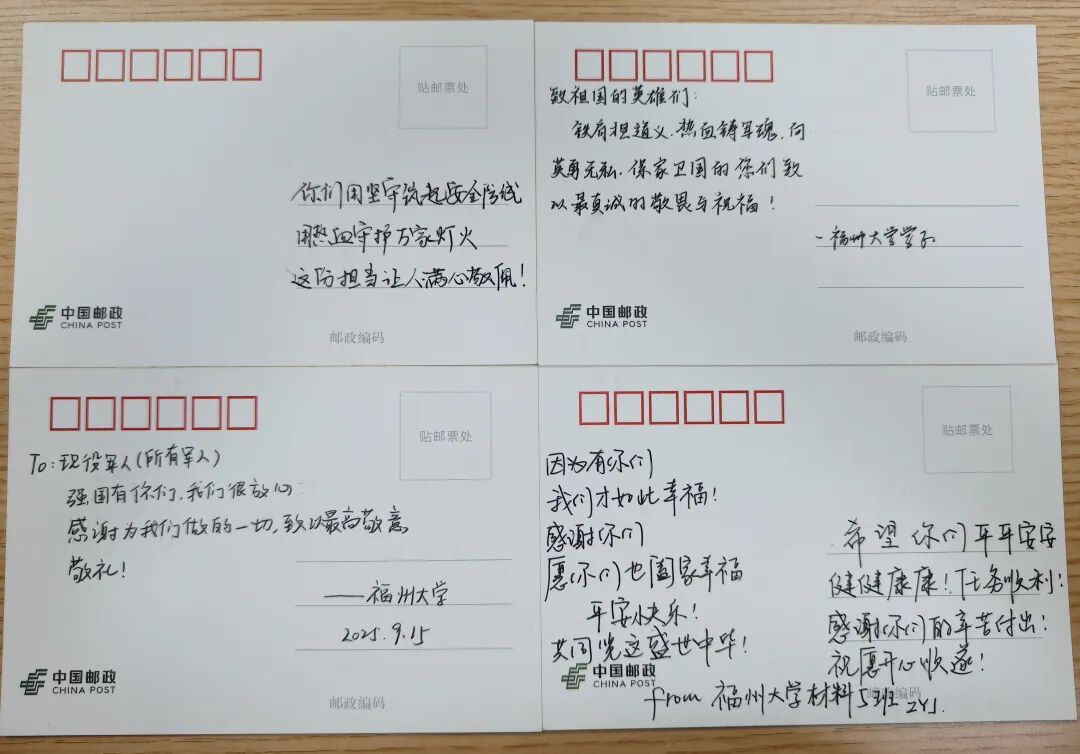 贴邮票处
你们用坚守筑起安全防线
用热血守护万家灯火
这份担当让人满心敬佩!
中国邮政
CHINA POST
邮政编码
贴邮票处
致祖国的英雄们:
铁肩担道义,热血铸军魂,向
英勇无私、保家卫国的您们致
以最真诚的敬畏与祝福!
-福州大学学子
中国邮政
CHINA POST
邮政编码
贴邮票处
To:现役军人(所有军人)
强国有你们,我们很放心
感谢为我们做的一切,致以最高敬意
敬礼!
——福州大学
2025.9.15
中国邮政
CHINA POST
邮政编码
贴邮票处
因为有你们
我们才如此幸福!
感谢你们
愿你们也阖家幸福
平安快乐!
共同党这盛世中华!
希望你们平平安安
健健康康!任务顺利!
感谢你们的辛苦付出!
祝愿开心顺遂!
中国邮政
CHINA POST
邮政编码
from 福州大学材料5班 ZYJ.